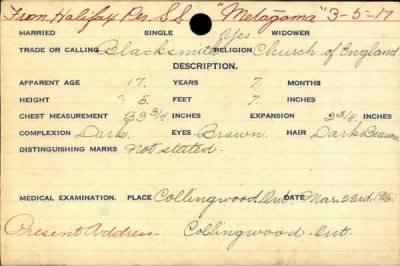 From Halifax Per S.S. "Metagama" 3-5-17
MARRIED SINGLE Yes. WIDOWER
TRADE OR CALLING Blacksmith RELIGION Church of England
DESCRIPTION.
APPARENT AGE 17. YEARS 7 MONTHS
HEIGHT 5. FEET 7. INCHES
CHEST MEASUREMENT 33 3/4 INCHES EXPANSION 2 3/4 INCHES
COMPLEXION Dark. EYES Brown. HAIR Dark Brown
DISTINGUISHING MARKS Not stated.
MEDICAL EXAMINATION. PLACE Collingwood. Ont. DATE Mar. 23rd. 1916.
Present Address- Collingwood. Ont.